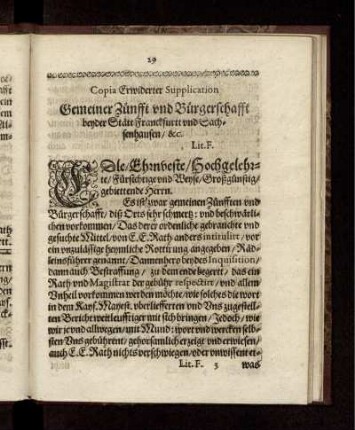 29
Copia Erwiderter Supplication
Gemeiner Zünfft vnd Bürgerschafft
beyder Stätt Franckfurtt vnd Sach-
senhausen / &c.
Lit. F.
EDle / Ehrnveste / Hochgelehr-
te / Fürsichtige vnd Weyse / Großgünstig /
gebiettende Herrn.
Es ist zwar gemeinen Zünfften vnd
Bürgerschafft / diß Orts sehr schmertz: vnd beschwärli-
chen vorkommen / Das derer ordenliche gebrauchte vnd
gesuchte Mittel / von E. E. Rath anders intitulirt, vor
ein vnzulässige heymliche Rottirung angegeben / Räd-
leinsführer genannt / Dannenhero beydes Inquisition /
dann auch Bestraffung / zu dem ende begert / das ein
Rath vnd Magistrat der gebühr respectirt / vnd allem
Vnheil vorkommen werden möchte / wie solches die wort
in dem Kays. Mayest. vberliefferten vnd Vns zugestell-
ten Bericht weitleufftiger mit sich bringen / Jedoch / wie
wir je vnd allwegen / mit Mund: wort vnd wercken selb-
sten Vns gebührent / gehorsamlich erzeigt vnd erwiesen /
auch E. E. Rath nichts verschwiegen / oder vnwissent
Lit. F. 5 was